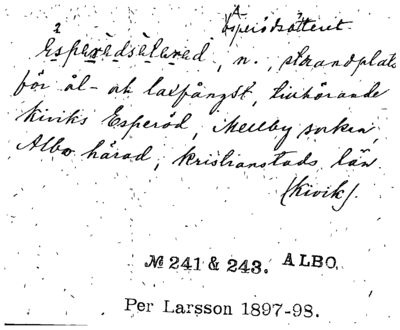 Esperödsätteret
Esperèdsätered, n., strandplats
för ål- och laxfångst, tillhörande
Kiviks Esperöd, Mellby socken,
Albo härad, Kristianstads län
(Kivik).
№ 241 & 243. ALBO.
Per Larsson 1897-98.